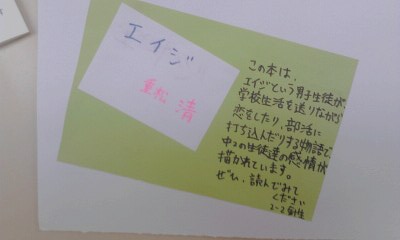 エイジ
重松 清
この本は、
エイジという男子生徒が、
学校生活を送りながら
恋をしたり、部活に
打ち込んだりする物語で、
中2の生徒達の感情が
描かれています。
ぜひ、読んでみて
ください
2-2 女子生